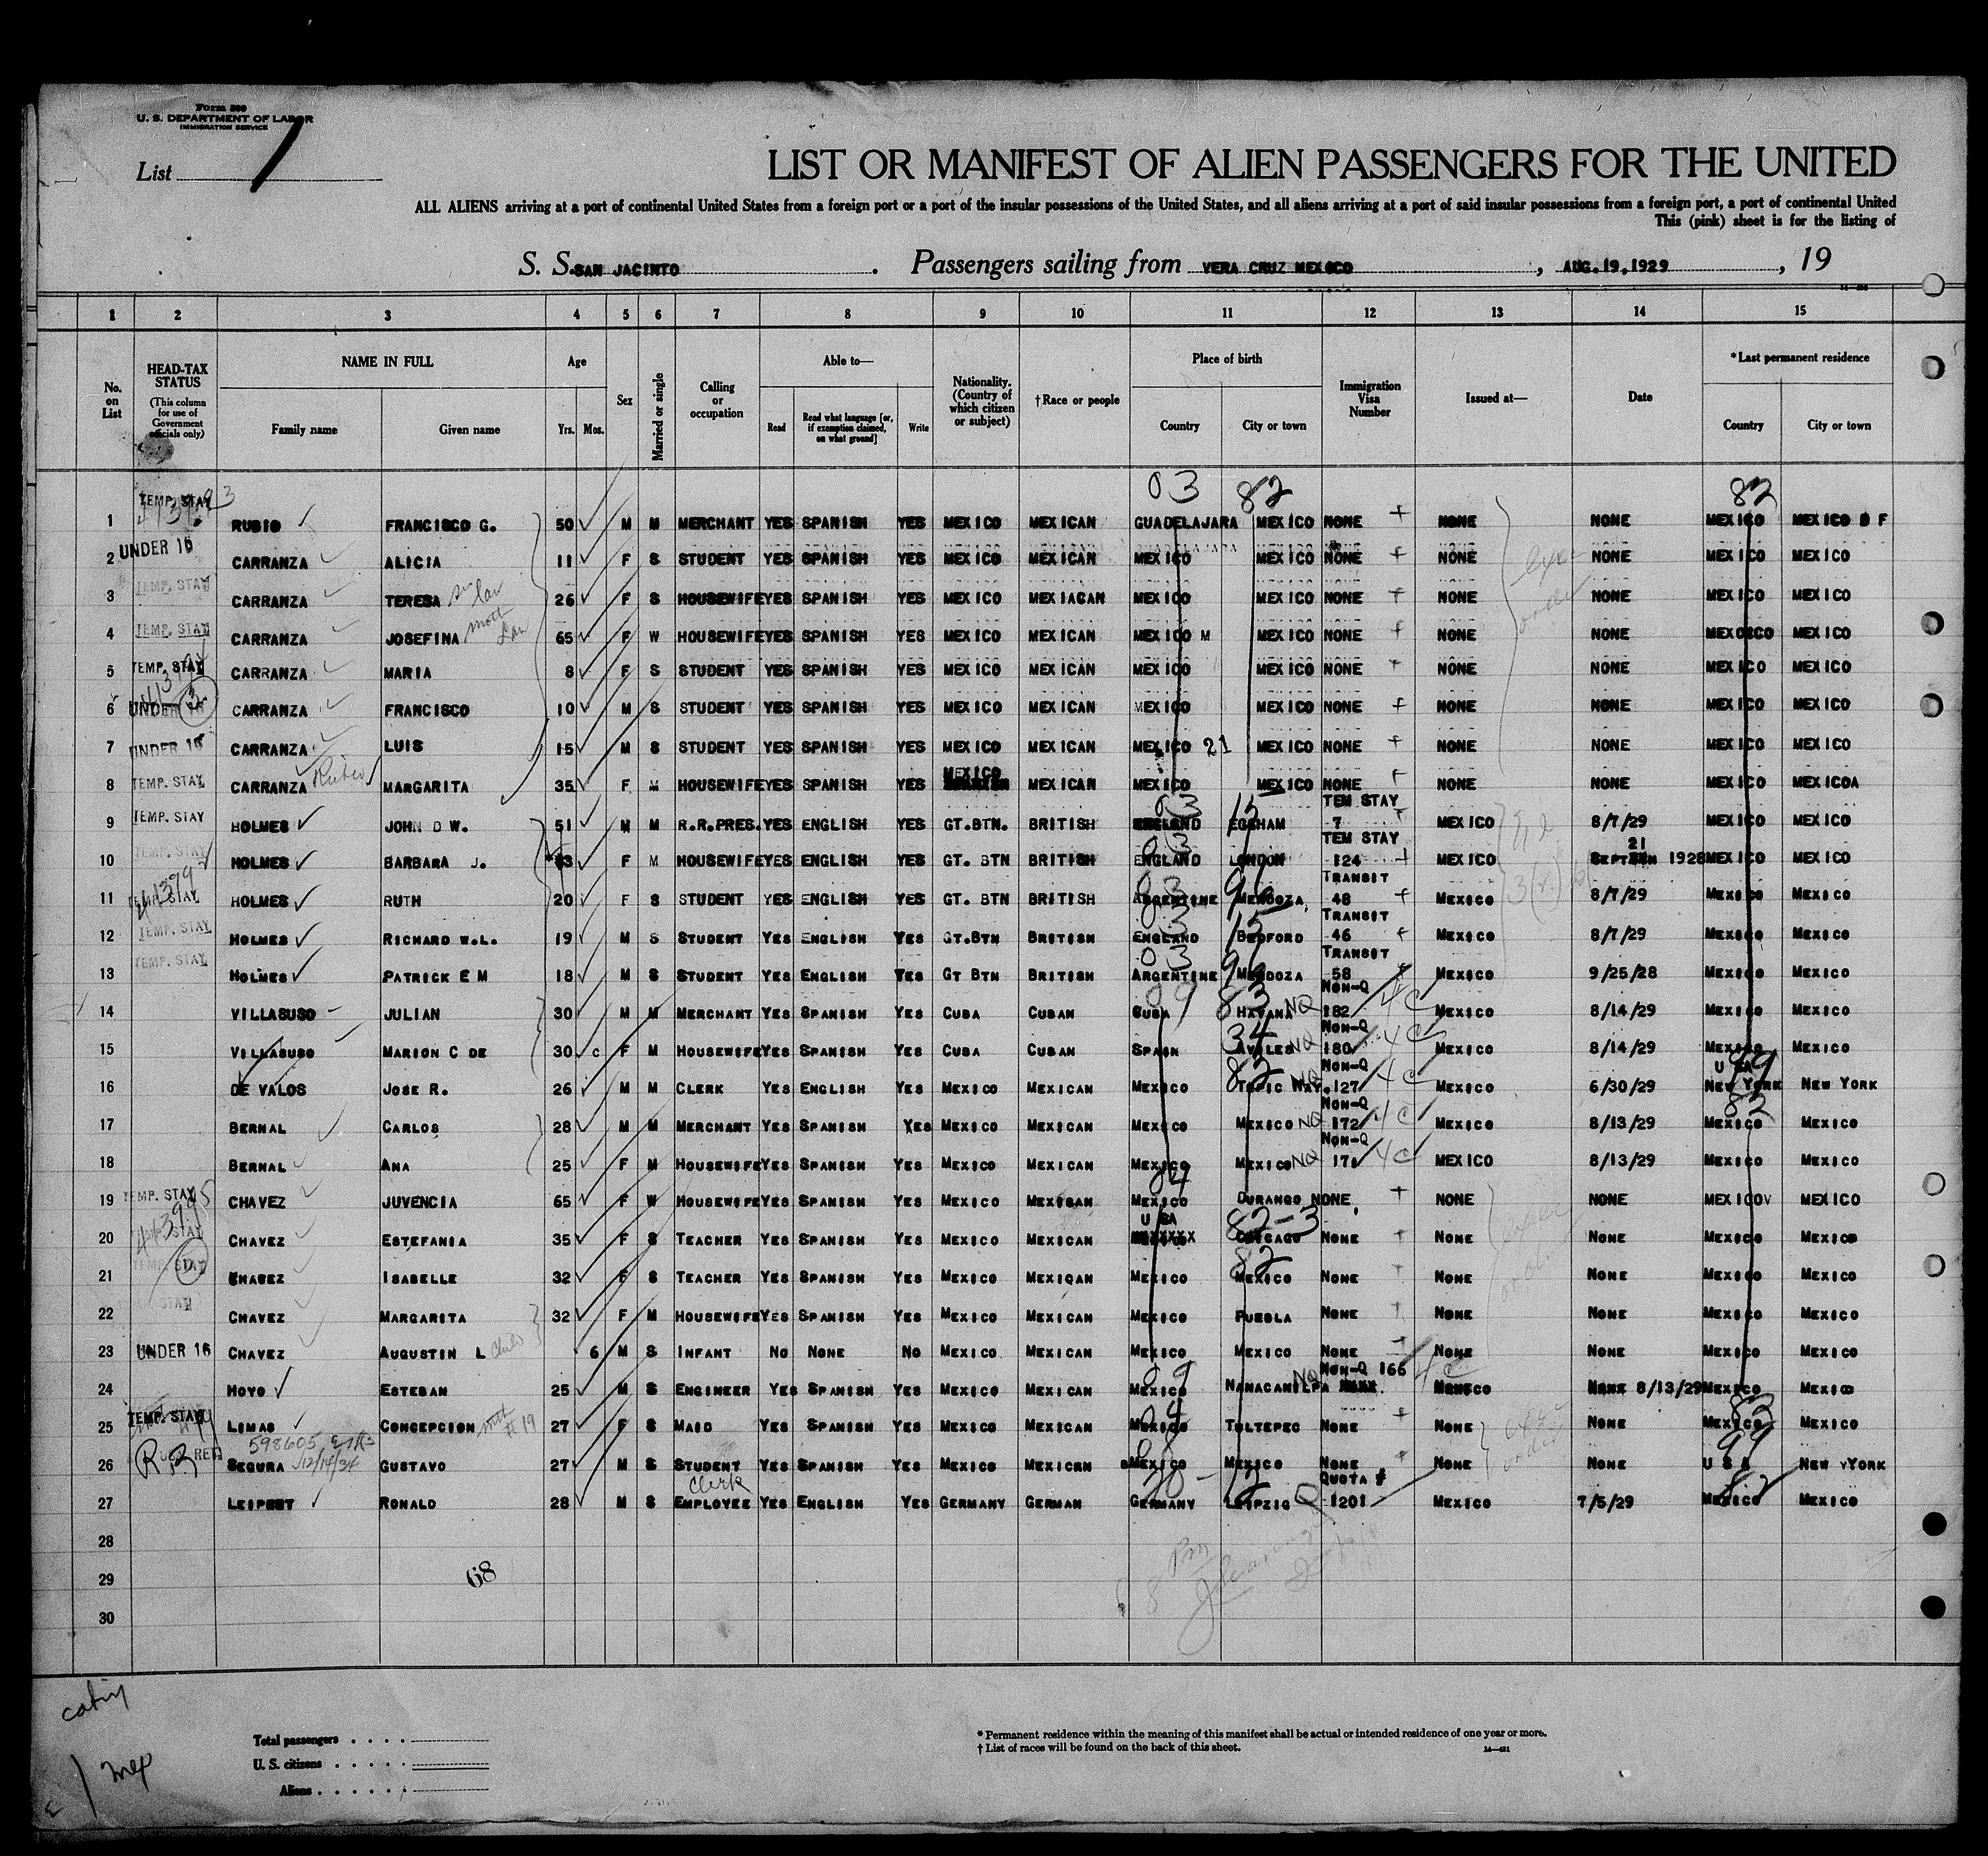 Form 500
U. S. DEPARTMENT OF LABOR
IMMIGRATION SERVICE
List 1
LIST OR MANIFEST OF ALIEN PASSENGERS FOR THE UNITED
ALL ALIENS arriving at a port of continental United States from a foreign port or a port of the insular possessions of the United States, and all aliens arriving at a port of said insular possessions from a foreign port, a port of continental United
This (pink) sheet is for the listing of
S. S. SAN JACINTO . Passengers sailing from VERA CRUZ MEXICO , AUG.19,1929 , 19
1 2 3 4 5 6 7 8 9 10 11 12 13 14 15
No. on List
HEAD-TAX STATUS (This column for use of Government officials only)
NAME IN FULL Family name Given name
Age Yrs. Mos.
Sex
Married or single
Calling or occupation
Able to— Read Read what language [or, if exemption claimed, on what ground] Write
Nationality. (Country of which citizen or subject)
†Race or people
Place of birth Country City or town
Immigration Visa Number
Issued at—
Date
*Last permanent residence Country City or town
03 82 82
1 TEMP. STAY RUBIO FRANCISCO G. 50 M M MERCHANT YES SPANISH YES MEXICO MEXICAN GUADELAJARA MEXICO NONE NONE NONE MEXICO MEXICO D F
2 UNDER 16 CARRANZA ALICIA 11 F S STUDENT YES SPANISH YES MEXICO MEXICAN MEXICO MEXICO NONE NONE NONE MEXICO MEXICO
3 TEMP. STAY CARRANZA TERESA 26 F S HOUSEWIFE YES SPANISH YES MEXICO MEXIACAN MEXICO MEXICO NONE NONE NONE MEXICO MEXICO
4 TEMP. STAY CARRANZA JOSEFINA 65 F W HOUSEWIFE YES SPANISH YES MEXICO MEXICAN MEXICO M MEXICO NONE NONE NONE MEXOICO MEXICO
5 TEMP. STAY CARRANZA MARIA 8 F S STUDENT YES SPANISH YES MEXICO MEXICAN MEXICO MEXICO NONE NONE NONE MEXICO MEXICO
6 UNDER 16 CARRANZA FRANCISCO 10 M S STUDENT YES SPANISH YES MEXICO MEXICAN MEXICO MEXICO NONE NONE NONE MEXICO MEXICO
7 UNDER 16 CARRANZA LUIS 15 M S STUDENT YES SPANISH YES MEXICO MEXICAN MEXICO 21 MEXICO NONE NONE NONE MEXICO MEXICO
8 TEMP. STAY CARRANZA Rubio MARGARITA 35 F M HOUSEWIFE YES SPANISH YES MEXICO MEXICAN MEXICO MEXICO NONE NONE NONE MEXICO MEXICOA
9 TEMP. STAY HOLMES JOHN D W. 51 M M R.R.PRES. YES ENGLISH YES GT.BTN. BRITISH ENGLAND EGGHAM TEM STAY 7 MEXICO 8/7/29 MEXICO MEXICO
10 TEMP. STAY HOLMES BARBARA J. 43 F M HOUSEWIFE YES ENGLISH YES GT. BTN BRITISH ENGLAND LONDON TEM STAY 124 MEXICO 21 1928 MEXICO MEXICO
11 TEMP. STAY HOLMES RUTH 20 F S STUDENT YES ENGLISH YES GT. BTN BRITISH ARGENTINE MENDOZA TRANSIT 48 MEXICO 8/7/29 MEXICO MEXICO
12 TEMP. STAY HOLMES RICHARD W.L. 19 M S STUDENT YES ENGLISH YES GT.BTN BRITISH ENGLAND BEDFORD TRANSIT 46 MEXICO 8/7/29 MEXICO MEXICO
13 TEMP. STAY HOLMES PATRICK E M 18 M S STUDENT YES ENGLISH YES GT BTN BRITISH ARGENTINE MENDOZA TRANSIT 58 MEXICO 9/25/28 MEXICO MEXICO
14 VILLASUSO JULIAN 30 M M MERCHANT YES SPANISH YES CUBA CUBAN CUBA HAVANA NQ NON-Q 182 4C MEXICO 8/14/29 MEXICO MEXICO
15 VILLASUSO MARION C DE 30 C F M HOUSEWIFE YES SPANISH YES CUBA CUBAN SPAIN AVILES NQ NON-Q 180 4C MEXICO 8/14/29 MEXICO MEXICO
16 DE VALOS JOSE R. 26 M M CLERK YES ENGLISH YES MEXICO MEXICAN MEXICO TEPIC NAY. NON-Q 127 4C MEXICO 6/30/29 U SA NEW YORK NEW YORK
17 BERNAL CARLOS 28 M M MERCHANT YES SPANISH YES MEXICO MEXICAN MEXICO MEXICO NQ NON-Q 172 4C MEXICO 8/13/29 MEXICO MEXICO
18 BERNAL ANA 25 F M HOUSEWIFE YES SPANISH YES MEXICO MEXICAN MEXICO MEXICO NQ NON-Q 171 4C MEXICO 8/13/29 MEXICO MEXICO
19 TEMP. STAY CHAVEZ JUVENCIA 65 F W HOUSEWIFE YES SPANISH YES MEXICO MEXICAN MEXICO DURANGO NONE NONE NONE MEXICOV MEXICO
20 STAY CHAVEZ ESTEFANIA 35 F S TEACHER YES SPANISH YES MEXICO MEXICAN U SA CHICAGO 82-3 NONE NONE NONE MEXICO MEXICO
21 TEMP. STAY CHAVEZ ISABELLE 32 F S TEACHER YES SPANISH YES MEXICO MEXICAN MEXICO MEXICO 82 NONE NONE NONE MEXICO MEXICO
22 STAY CHAVEZ MARGARITA 32 F M HOUSEWIFE YES SPANISH YES MEXICO MEXICAN MEXICO PUEBLA NONE NONE NONE MEXICO MEXICO
23 UNDER 16 CHAVEZ AUGUSTIN L child 6 M S INFANT NO NONE NO MEXICO MEXICAN MEXICO MEXICO NONE NONE NONE MEXICO MEXICO
24 HOYO ESTEBAN 25 M S ENGINEER YES SPANISH YES MEXICO MEXICAN MEXICO NANACANILPA NQ NON-Q 166 4C MEXICO 8/13/29 MEXICO MEXICO
25 TEMP. STAY LIMAS CONCEPCION with #19 27 F S MAID YES SPANISH YES MEXICO MEXICAN MEXICO TULTEPEC NONE NONE NONE MEXICO MEXICO
598605 12/14/34
26 SEGURA GUSTAVO 27 M S STUDENT Clerk YES SPANISH YES MEXICO MEXICAN MEXICO MEXICO NONE NONE NONE U S A NEW YORK
27 LEIPERT RONALD 28 M S EMPLOYEE YES ENGLISH YES GERMANY GERMAN GERMANY LEIPZIG Q QUOTA # 1201 MEXICO 7/5/29 MEXICO MEXICO
28
29
30
68
cabin
mex
Total passengers
U. S. citizens
Aliens
* Permanent residence within the meaning of this manifest shall be actual or intended residence of one year or more.
† List of races will be found on the back of this sheet.